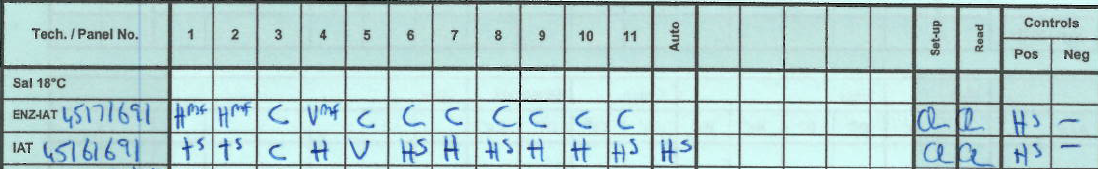 Tech. / Panel No. 1 2 3 4 5 6 7 8 9 10 11 Auto Set-up Read Controls
Pos Neg
Sal 18°C
ENZ-IAT 45171691 H mf H mf C V mf C C C C C C C Hs –
IAT 45161691 ts ts C H V HS H HS H H HS HS HS –